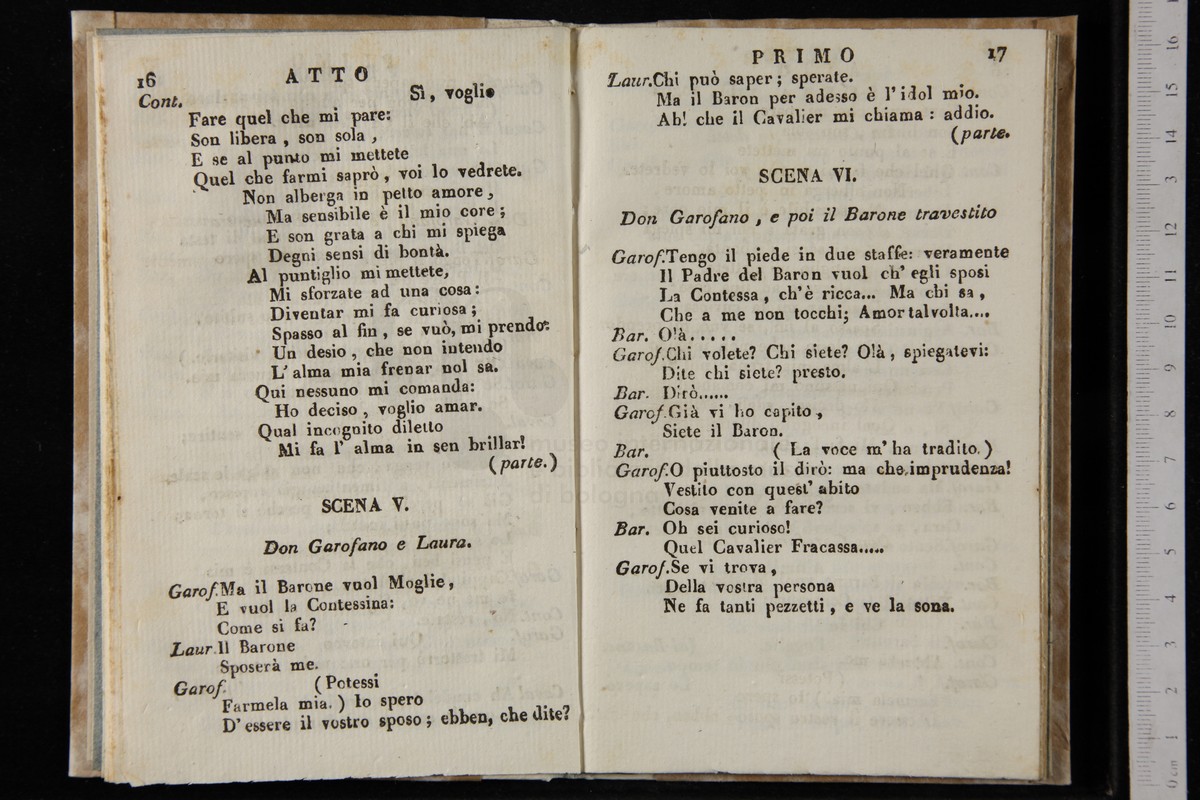 16 ATTO
Cont. Sì, voglio
Fare quel che mi pare:
Son libera, son sola,
E se al punto mi mettete
Quel che farmi saprò, voi lo vedrete.
Non alberga in petto amore,
Ma sensibile è il mio core;
E son grata a chi mi spiega
Degni sensi di bontà.
Al puntiglio mi mettete,
Mi sforzate ad una cosa:
Diventar mi fa curiosa;
Spasso al fin, se vuò, mi prendo:
Un desio, che non intendo
L'alma mia frenar nol sa.
Qui nessuno mi comanda:
Ho deciso, voglio amar.
Qual incognito diletto
Mi fa l' alma in sen brillar!
(parte.)
SCENA V.
Don Garofano e Laura.
Garof. Ma il Barone vuol Moglie,
E vuol la Contessina:
Come si fa?
Laur. Il Barone
Sposerà me.
Garof. (Potessi
Farmela mia.) Io spero
D'essere il vostro sposo; ebben, che dite?
PRIMO 17
Laur. Chi può saper; sperate.
Ma il Baron per adesso è l'idol mio.
Ah! che il Cavalier mi chiama: addio.
(parte.
SCENA VI.
Don Garofano, e poi il Barone travestito
Garof. Tengo il piede in due staffe: veramente
Il Padre del Baron vuol ch' egli sposi
La Contessa, ch'è ricca... Ma chi sa,
Che a me non tocchi; Amor talvolta....
Bar. Olà.....
Garof. Chi volete? Chi siete? Olà, spiegatevi:
Dite chi siete? presto.
Bar. Dirò......
Garof. Già vi ho capito,
Siete il Baron.
Bar. (La voce m'ha tradito.)
Garof. O piuttosto il dirò: ma che imprudenza!
Vestito con quest' abito
Cosa venite a fare?
Bar. Oh sei curioso!
Quel Cavalier Fracassa.....
Garof. Se vi trova,
Della vostra persona
Ne fa tanti pezzetti, e ve la sona.